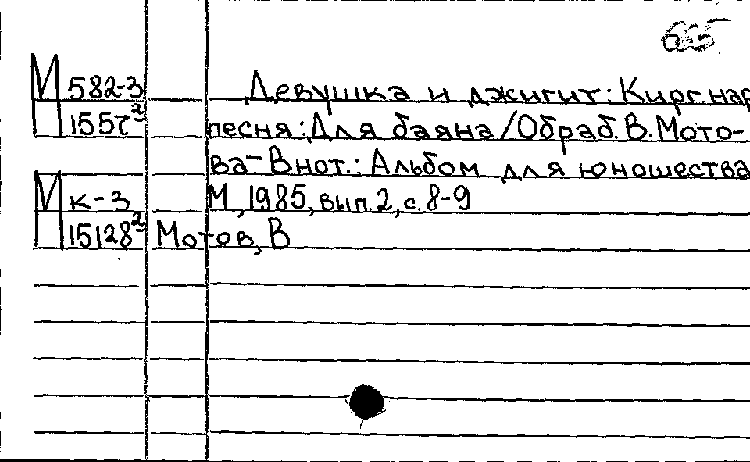 665
М 582-3 Девушка и джигит: Кирг. нар
1557² песня: Для баяна/Обраб. В. Мото-
ва-В нот.: Альбом для юношества
М к-3 М, 1985, вып. 2, с. 8-9
15128² Мотов, В